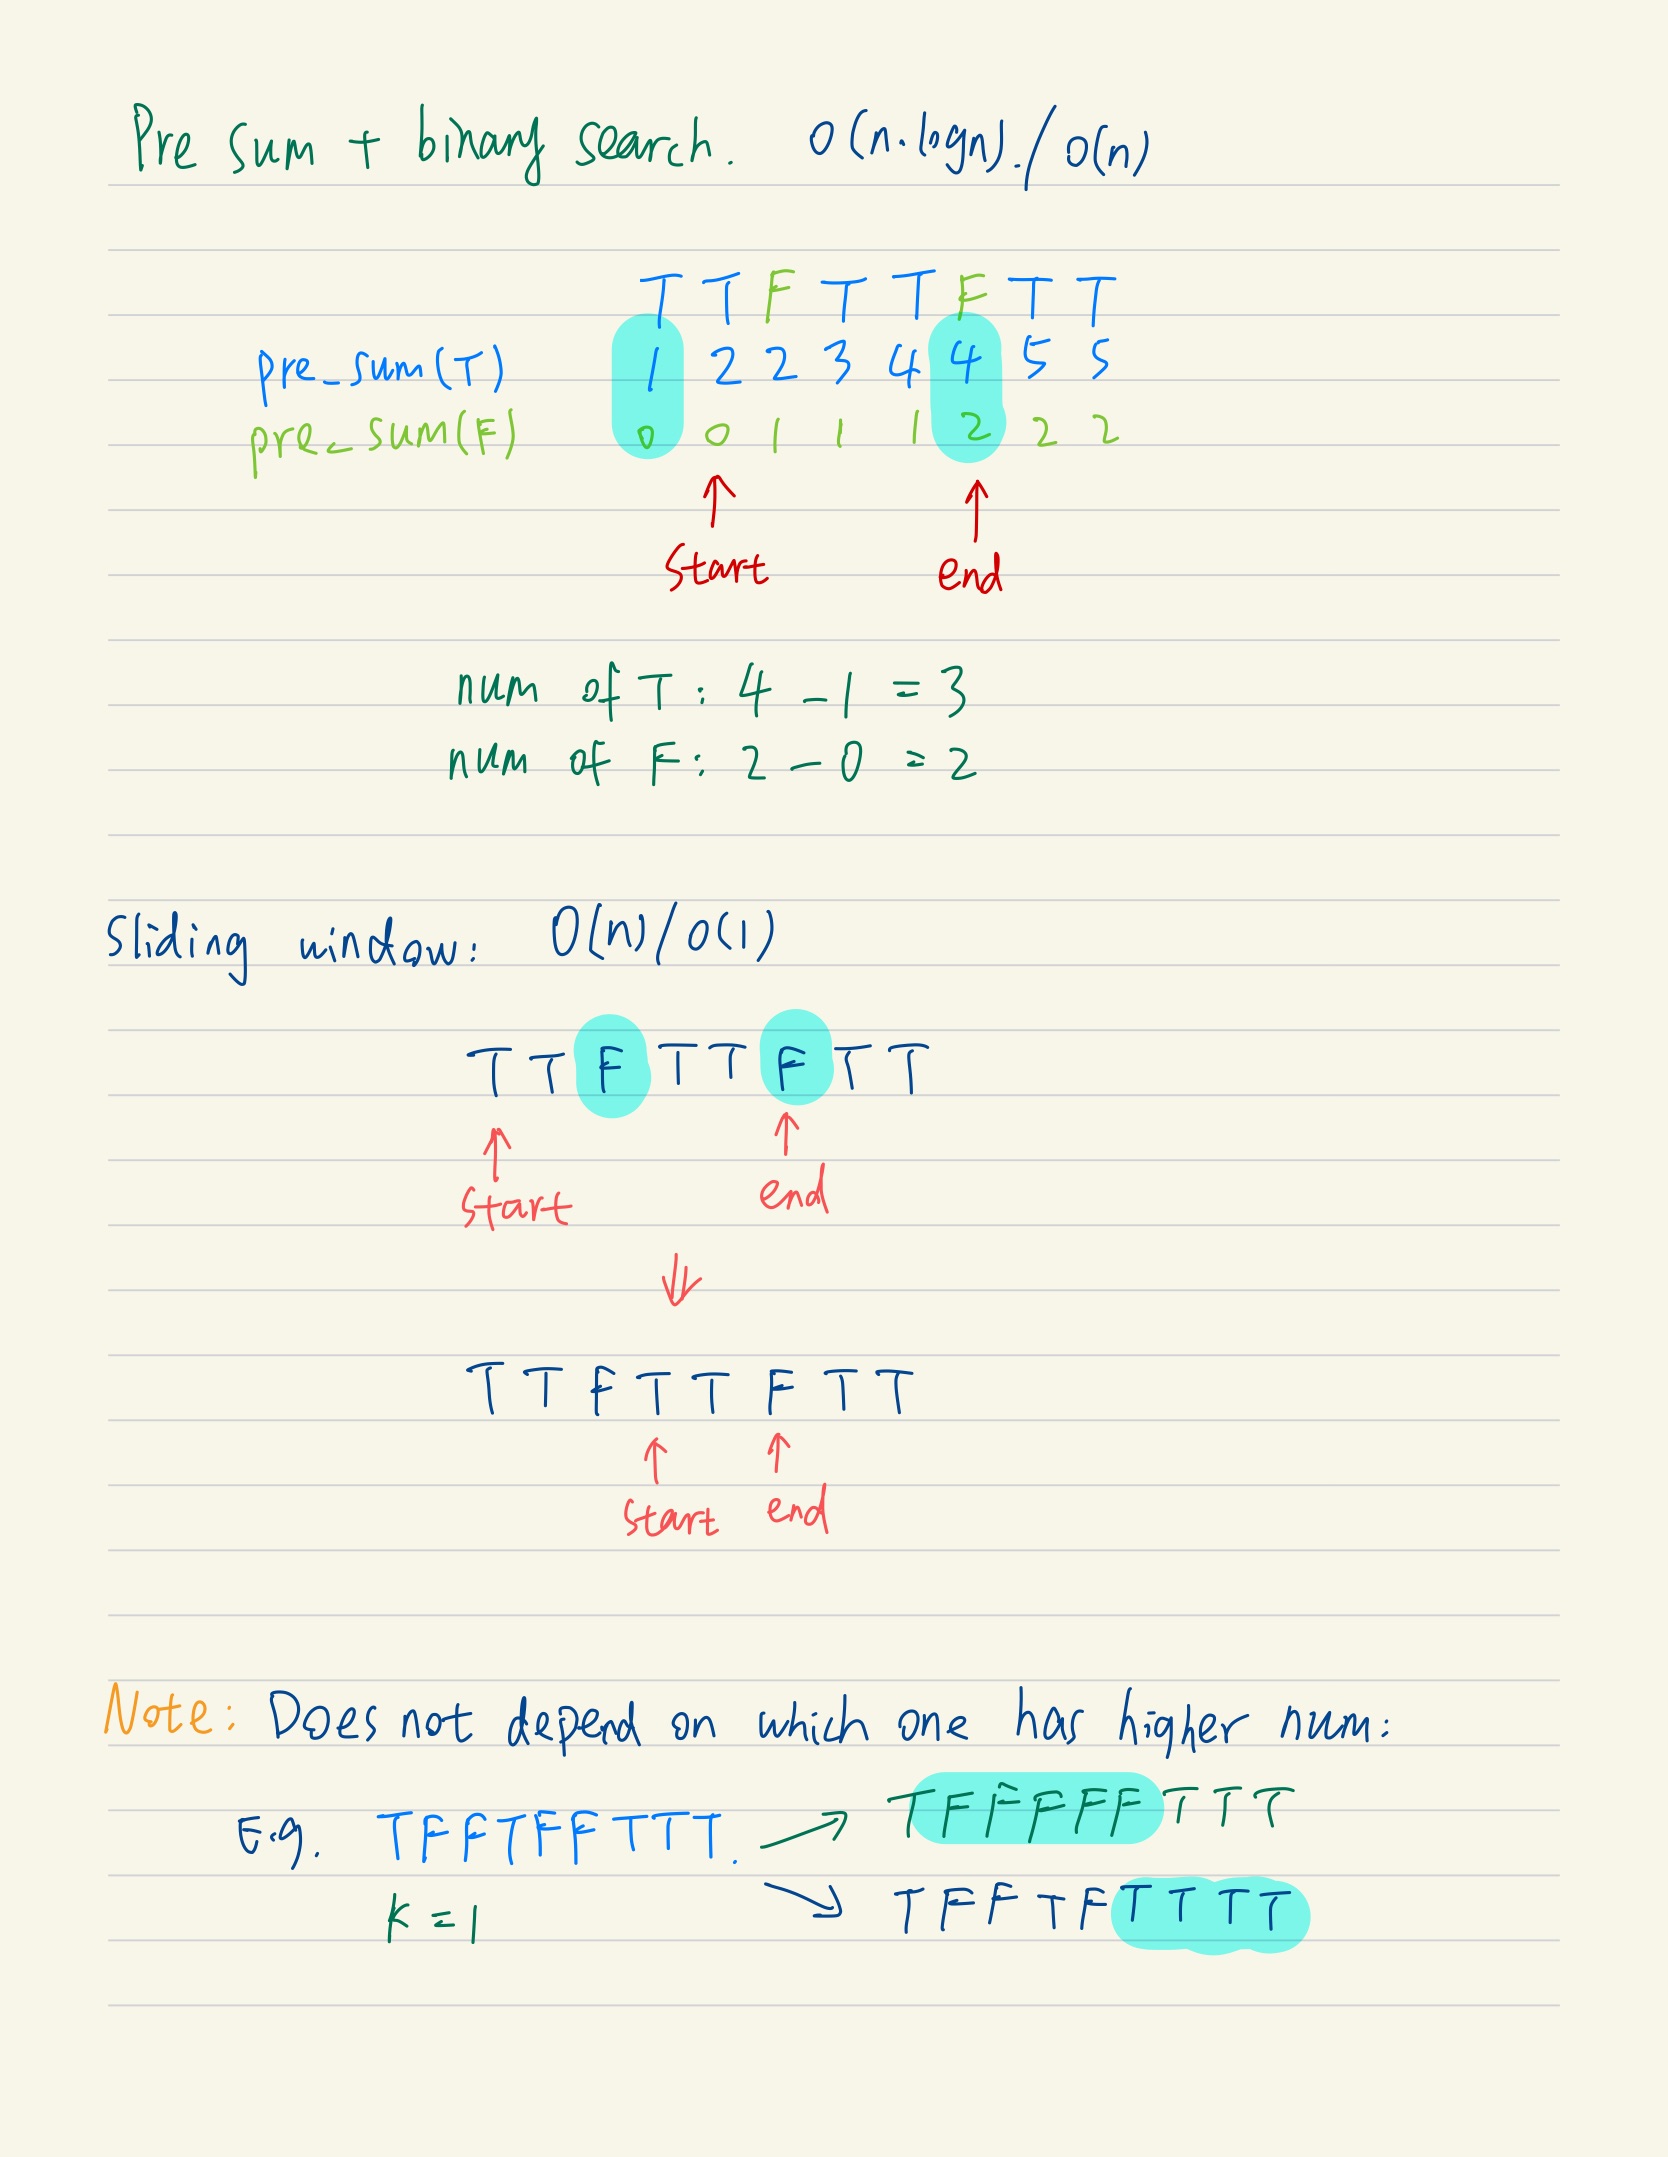 Pre sum + binary search. O(n.logn)./O(n)
T T F T T F T T
pre_sum(T) 1 2 2 3 4 4 5 5
pre_sum(F) 0 0 1 1 1 2 2 2
↑ ↑
start end
num of T: 4 - 1 = 3
num of F: 2 - 0 = 2
Sliding window: O(n)/O(1)
T T F T T F T T
↑ ↑
start end
⇓
T T F T T F T T
↑ ↑
start end
Note: Does not depend on which one has higher num:
E.g. TFFTFFTTT. → TFFFFFTTT
K = 1 → TFFTFTTTT